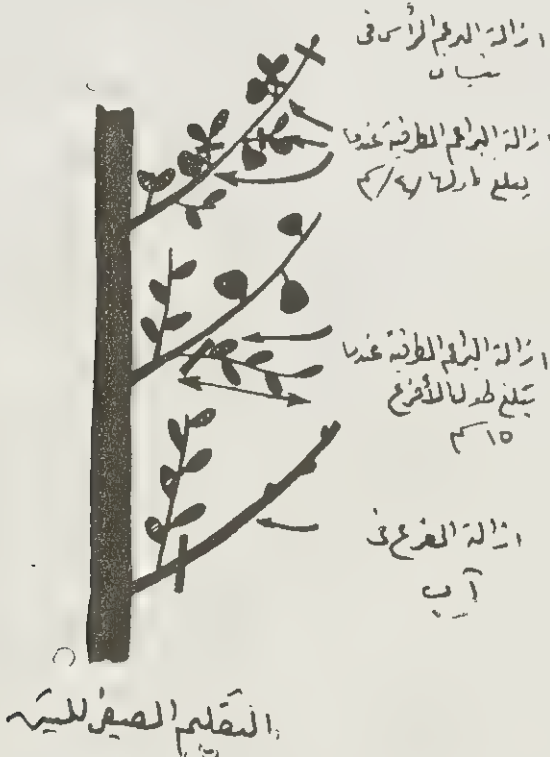 ازالة البرعم الرأسي في
ازالة البراعم الطرفية عندما
يبلغ طولها
ازالة البراعم الطرفية عندما
يبلغ طول الأفرع
١٥ سم
ازالة الفرع في
آب
التقليم الصيفي للتين